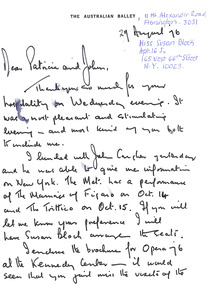 THE AUSTRALIAN BALLET,
11 Mt. Alexander Road
Flemington. 3031
29 August 76
Miss Susan Block
Apt. 16 J.
165 West 66th Street
N.Y. 10023.
Dear Patricia and John,
Thank you so much for your
hospitality on Wednesday evening. It
was a most pleasant and stimulating
evening - and most kind of you both
to include me.
I lunched with John yesterday
and he was able to give me information
on New York. The Met. has a performance
of the Marriage of Figaro on Oct. 14
and the Trittico on Oct. 15. If you will
let me know your preference I will
have Susan Block arrange the seats.
I enclose the brochure for Opera 76
at the Kennedy Center - it would
seen that you just miss the visits of the